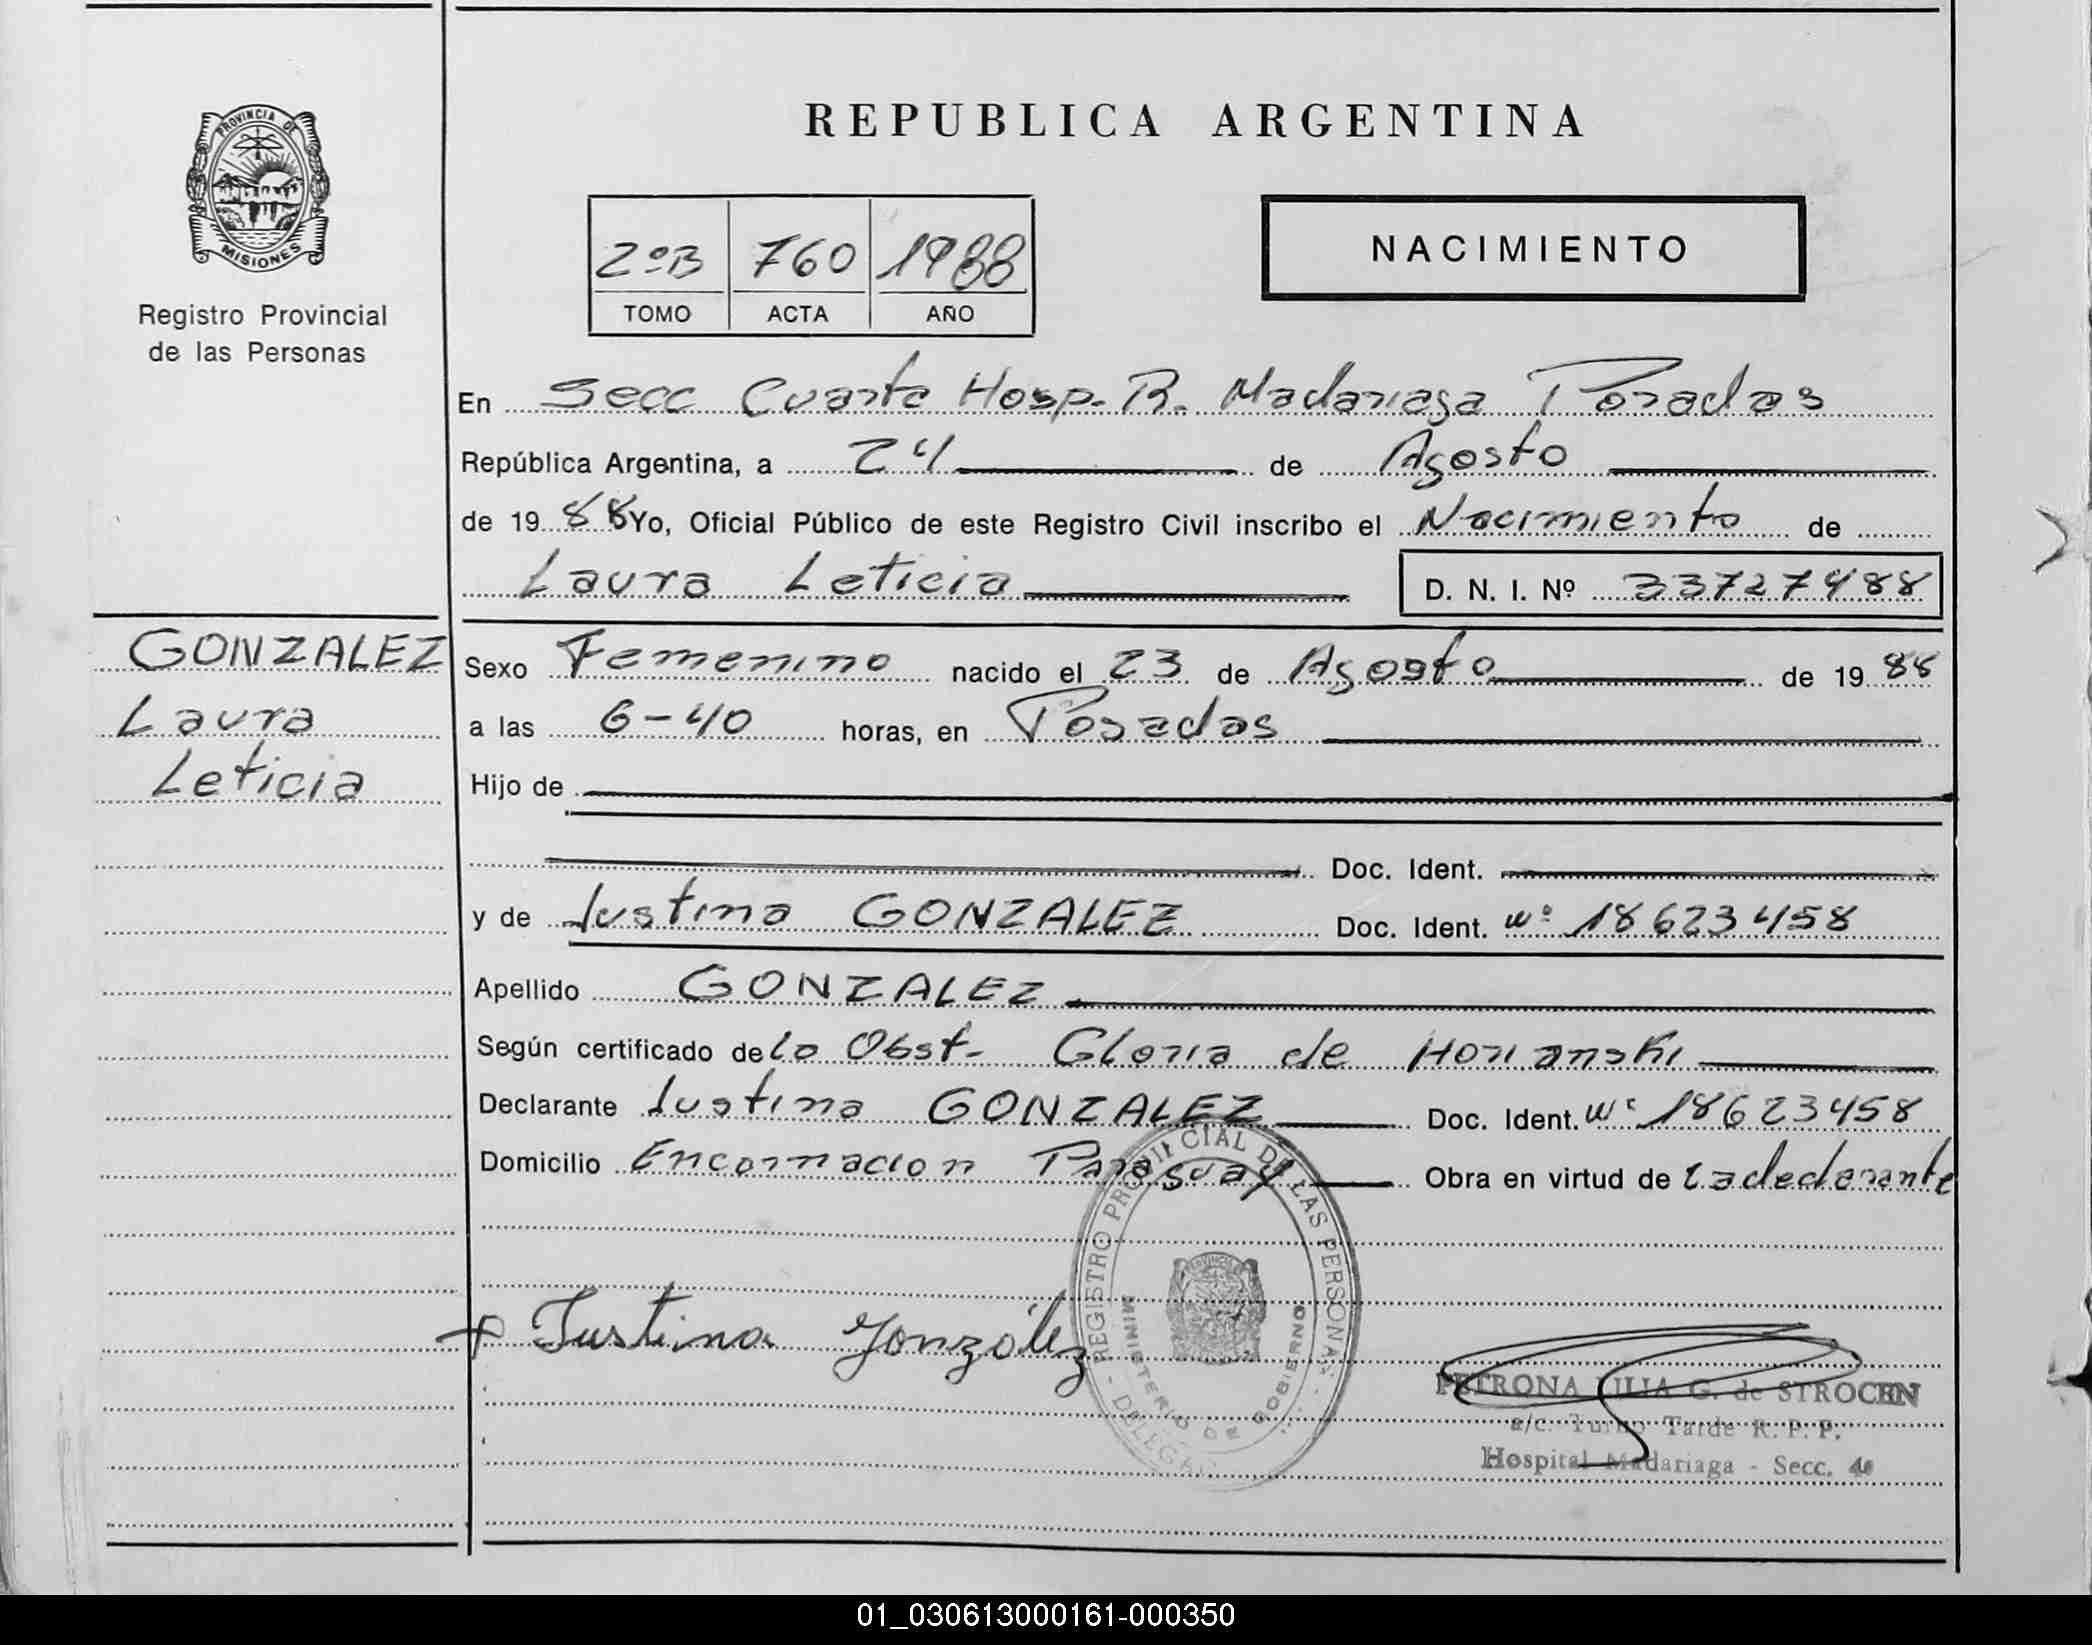 REPUBLICA ARGENTINA
PROVINCIA DE
MISIONES
Registro Provincial
de las Personas
2ºB 760 1988
TOMO ACTA AÑO
NACIMIENTO
En Secc Cuarta Hosp. R. Madariaga Posadas
República Argentina, a 24 de Agosto
de 1988 Yo, Oficial Público de este Registro Civil inscribo el Nacimiento de
Laura Leticia D. N. I. Nº 33727488
GONZALEZ
Laura
Leticia
Sexo Femenino nacido el 23 de Agosto de 1988
a las 6-40 horas, en Posadas
Hijo de
Doc. Ident.
y de Justina GONZALEZ Doc. Ident. Nº 18623458
Apellido GONZALEZ
Según certificado de la Obst. Gloria de Horianski
Declarante Justina GONZALEZ Doc. Ident. Nº 18623458
Domicilio Encarnacion Paraguay Obra en virtud de La declarante
Justina González
REGISTRO PROVINCIAL DE LAS PERSONAS
MINISTERIO DE GOBIERNO
PETRONA LILIA G. de STROCEN
a/c. Turno Tarde R. P. P.
Hospital Madariaga - Secc. 4a
01_030613000161-000350